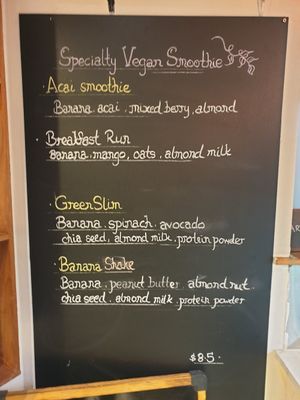 Specialty Vegan Smoothie
Acai smoothie
Banana. acai. mixed berry, almond
Breakfast Run
Banana. mango, oats. almond milk
GreenSlim
Banana. spinach. avocado
chia seed, almond milk. protein powder
Banana Shake
Banana. peanut butter. almond nut.
chia seed. almond milk. protein powder
$8.5.